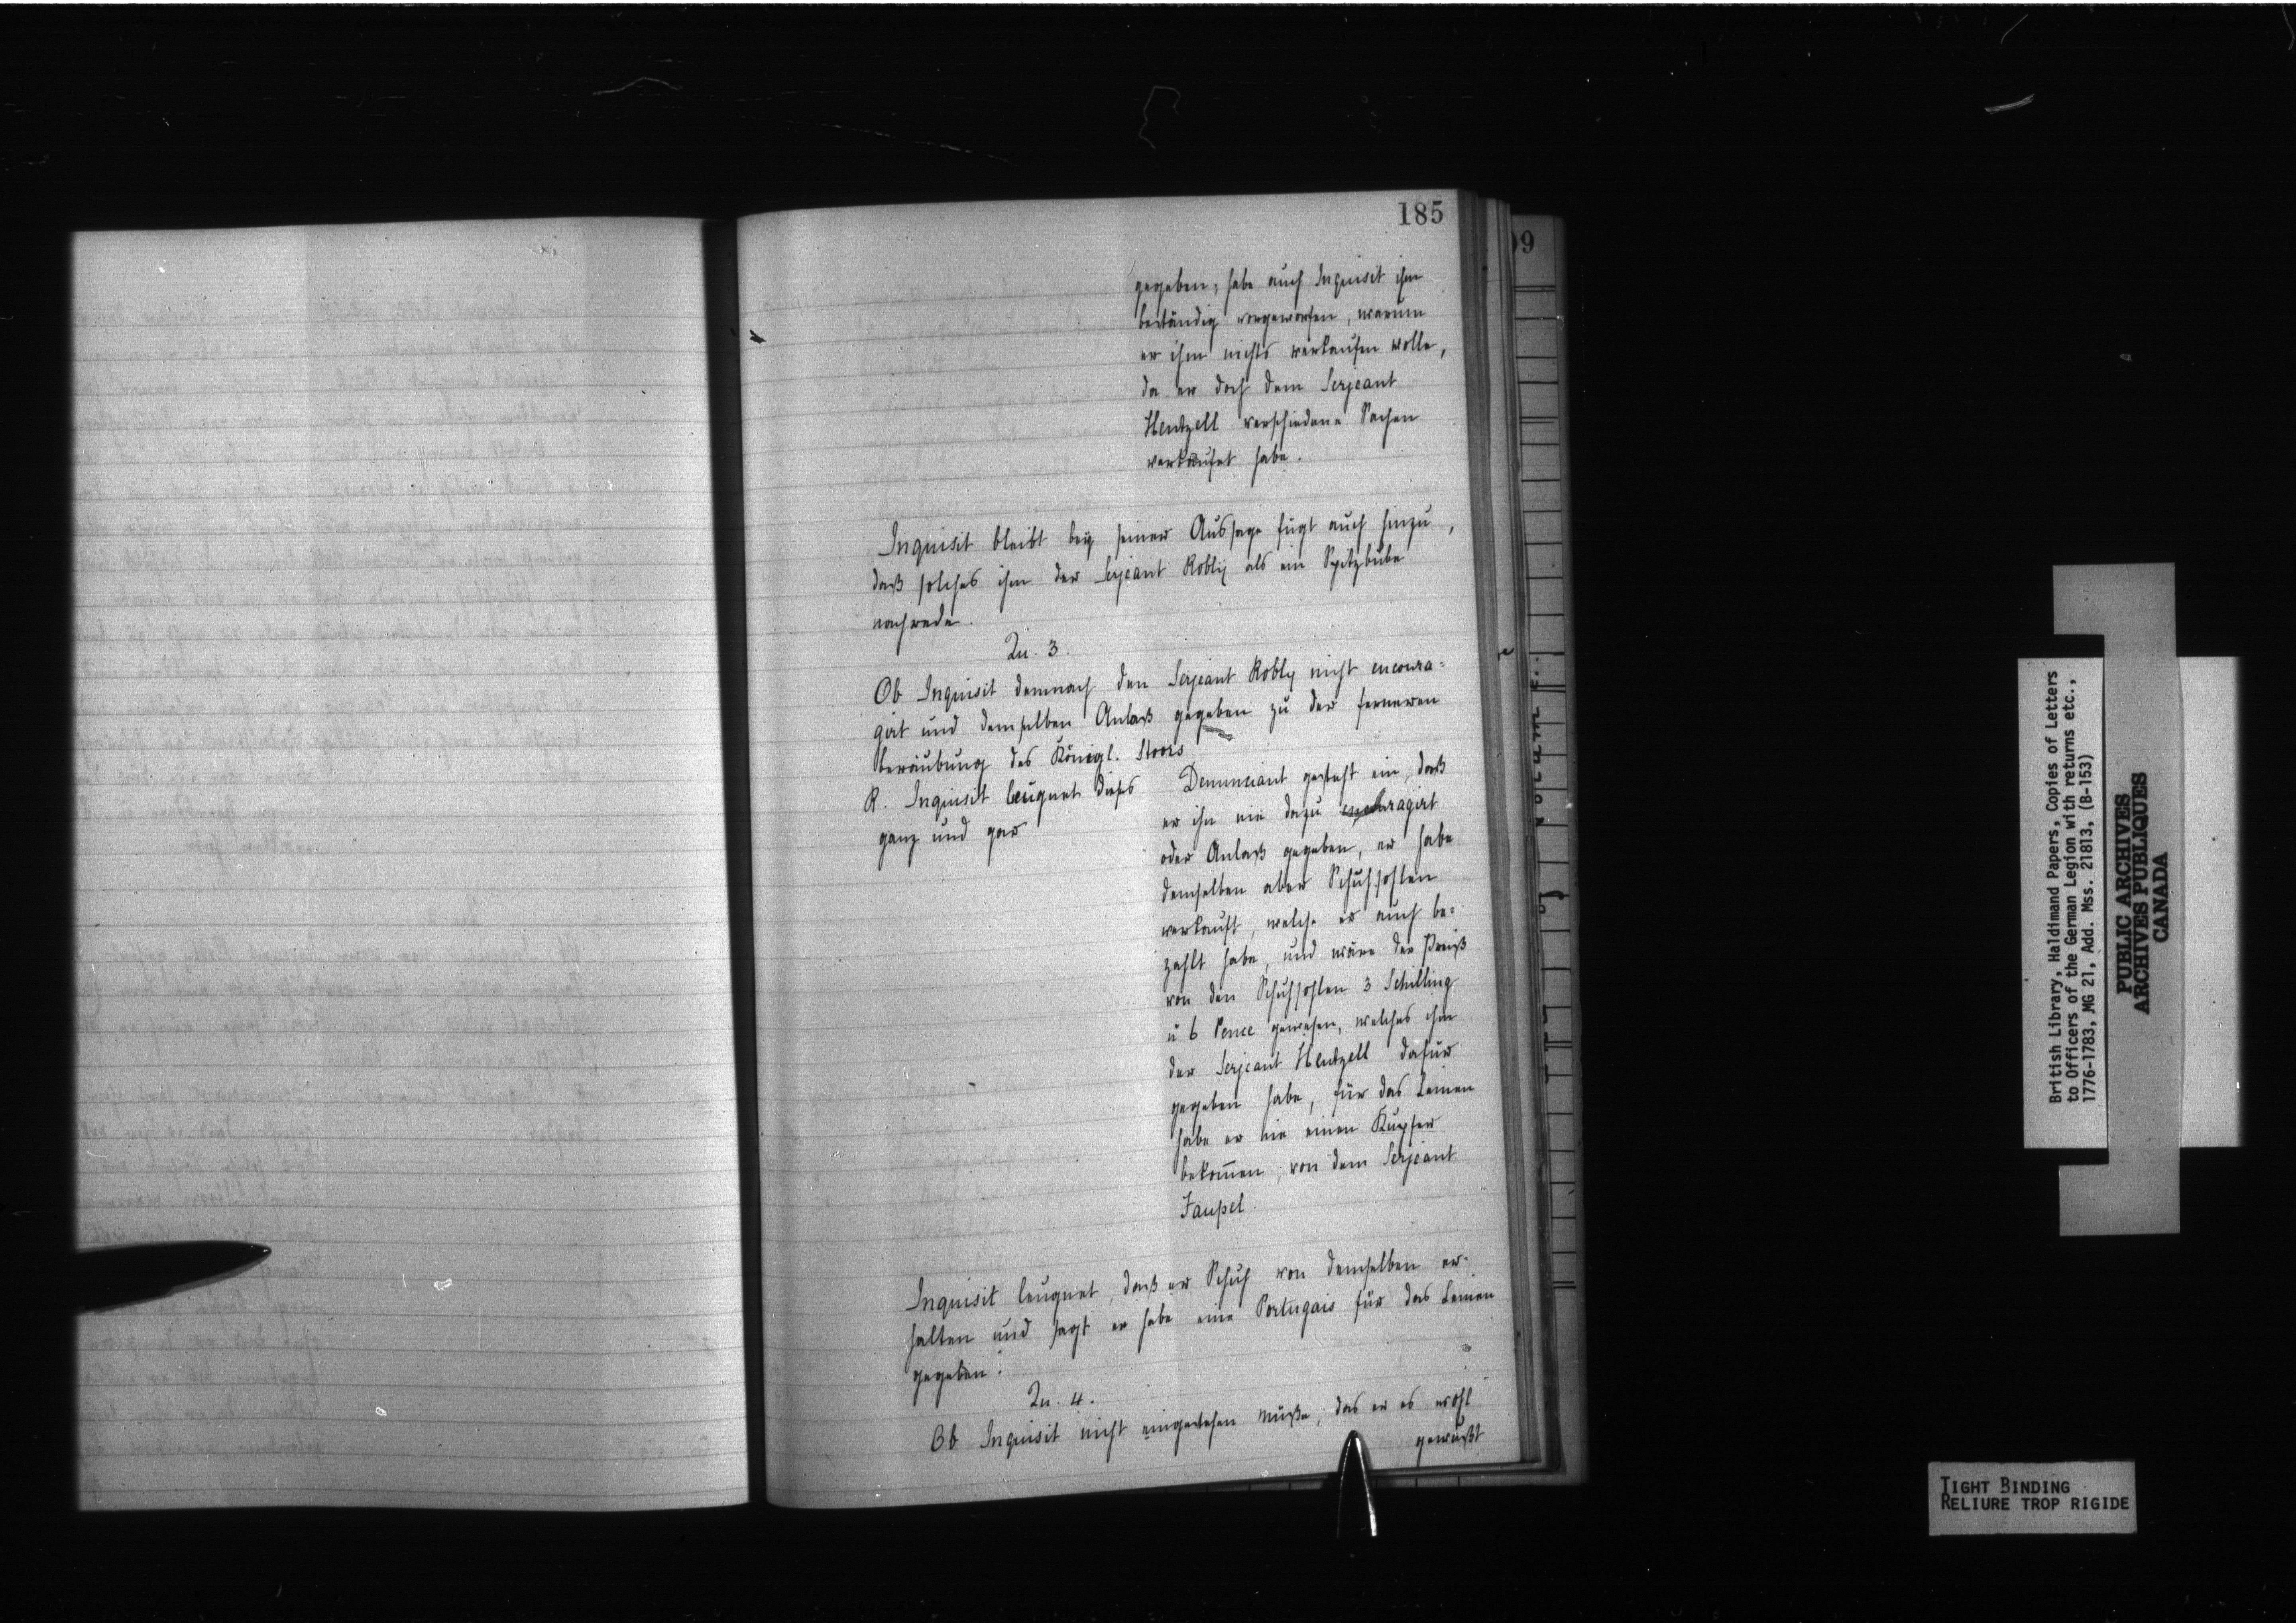 185
gegeben, habe auch Inquisit ihm
beständig vorgeworfen, warum
er ihm nichts verkaufen wolle,
da er doch dem Serjeant
Hentzell verschiedene Sachen
verkaufet habe.
Inquisit bleibt beÿ seiner Aussage fügt auch hinzu,
daß solches ihm der Serjeant Roblÿ als ein Spitzbube
nachrede.
Qu. 3.
Ob Inquisit demnach den Serjeant Robly nicht encoura-
girt und demselben Anlaß gegeben zu der ferneren
beraubung des Königl. Stoors
R. Inquisit leugnet dieses
ganz und gar
Denunciant gesteht ein, daß
er ihn nie dazu encouragirt
oder Anlaß gegeben, er habe
demselben aber Schuhsohlen
verkauft, welche er auch be-
zahlt habe, und wäre der Preiß
von den Schuhsohlen 3 Schilling
u 6 Pence gewesen, welches ihm
der Serjeant Hentzell dafür
gegeben habe, für das Leinen
habe er nie einen Kupfer
bekom̄en, von dem Serjeant
Faupel.
Inquisit leugnet, daß er Schuh von demselben er-
halten und sagt er habe eine Portugais für das Leinen
gegeben.
Qu. 4.
Ob Inquisit nicht eingestehen müße, das er es wohl
gewußt
09
British Library, Haldimand Papers, Copies of Letters
to Officers of the German Legion with returns etc.,
1776-1783, MG 21, Add. Mss. 21813, (B-153)
PUBLIC ARCHIVES
ARCHIVES PUBLIQUES
CANADA
TIGHT BINDING
RELIURE TROP RIGIDE